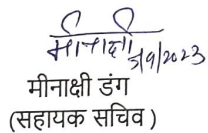 मीनाक्षी
5/9/2023
मीनाक्षी डंग
(सहायक सचिव)